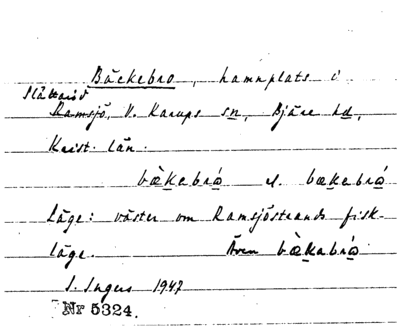 Bäckebro, hamnplats i
Slättaröd
Ramsjö, V. Karups sn, Bjäre hd,
Krist. län.
bæ̀kebrω el. bækebrω
Läge: väster om Ramsjöstrands fisk-
läge. Även bæ̀kabrω.
S. Ingers 1947
Nr 5324.